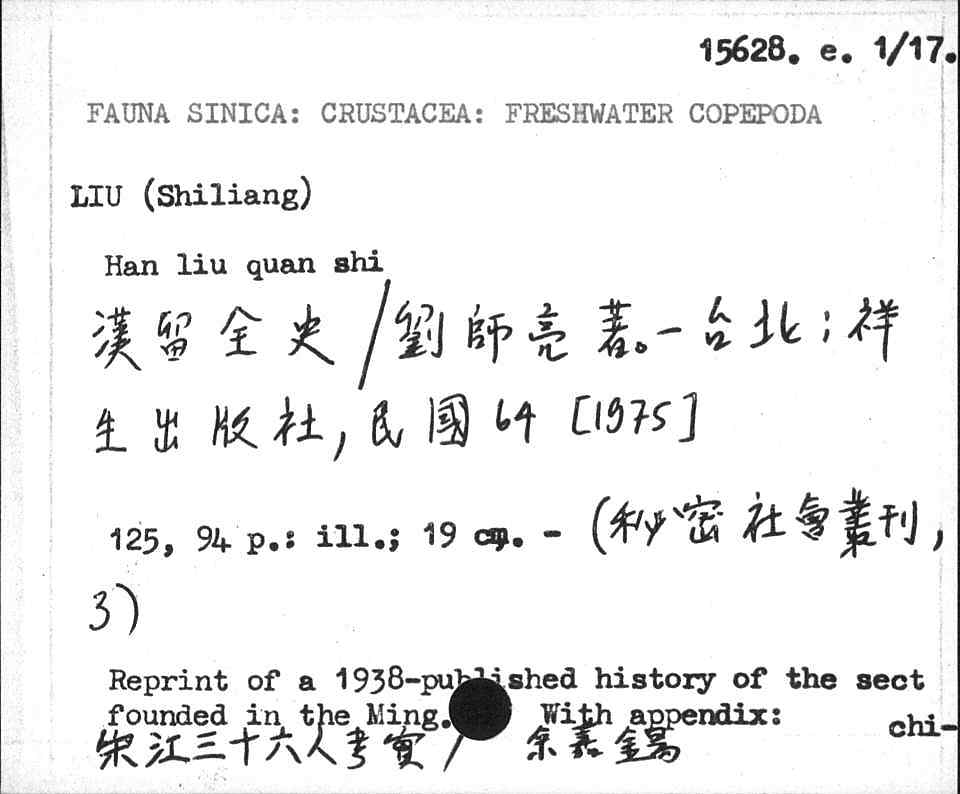 15628. e. 1/17.
FAUNA SINICA: CRUSTACEA: FRESHWATER COPEPODA
LIU (Shiliang)
Han liu quan shi
漢留全史/劉師亮著。—台北;祥
生出版社, 民國64 [1975]
125, 94 p.: ill.; 19 cm. - (秘密社會叢刊,
3)
Reprint of a 1938-published history of the sect
founded in the Ming. With appendix:
chi-
宋江三十六人考實 / 余嘉錫